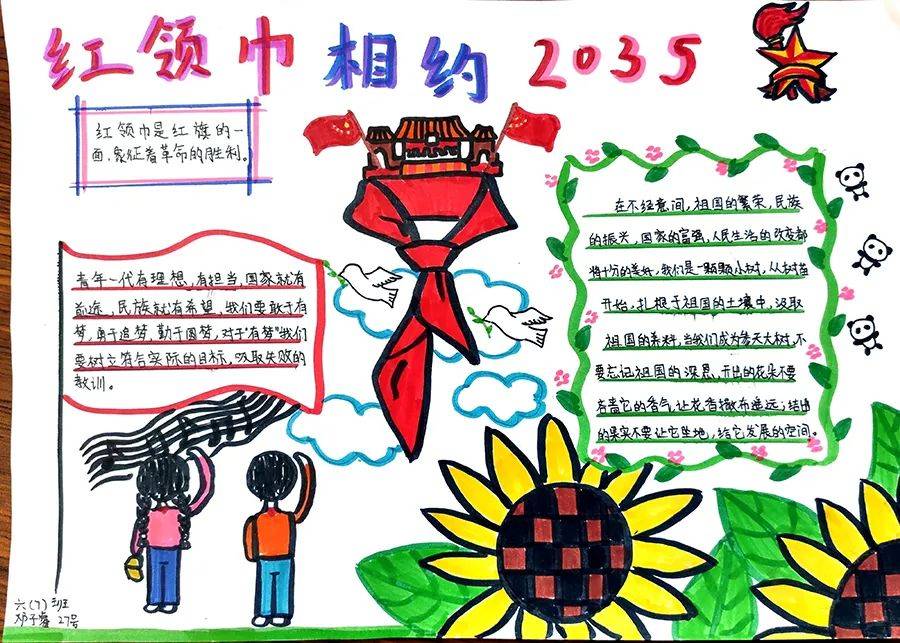 红领巾相约2035
红领巾是红旗的一
面,象征着革命的胜利。
青年一代有理想,有担当,国家就有
前途,民族就有希望,我们要敢于有
梦,勇于追梦,勤于圆梦,对于"有梦"我们
要树立符合实际的目标,吸取失败的
教训。
在不经意间,祖国的繁荣,民族
的振兴,国家的富强,人民生活的改变都
将十分的美好,我们是一颗颗小树,从树苗
开始,扎根于祖国的土壤中,汲取
祖国的养料,当我们成为参天大树,不
要忘记祖国的深恩,开出的花朵不要
吝啬它的香气,让花香散布遥远;结出
的果实不要让它坠地,给它发展的空间。
六(7)班
邓子睿 27号